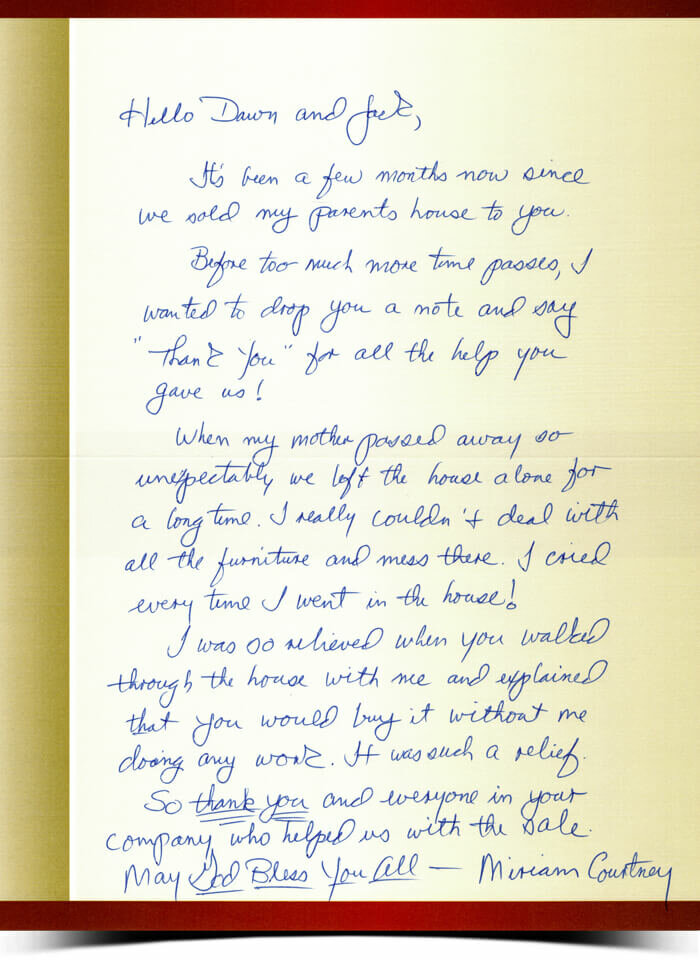 Hello Dawn and Jack,
It's been a few months now since
we sold my parents house to you.
Before too much more time passes, I
wanted to drop you a note and say
"Thank You" for all the help you
gave us!
When my mother passed away so
unexpectably we left the house alone for
a long time. I really couldn't deal with
all the furniture and mess there. I cried
every time I went in the house!
I was so relieved when you walked
through the house with me and explained
that you would buy it without me
doing any work. It was such a relief.
So thank you and everyone in your
company who helped us with the sale.
May God Bless You All — Miriam Courtney